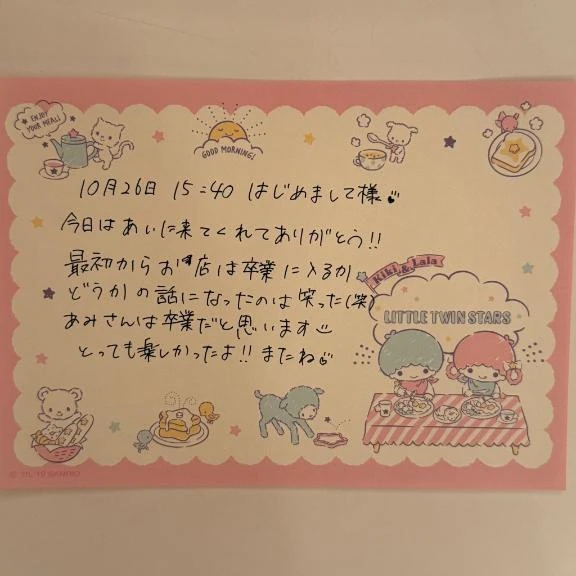 ENJOY
YOUR MEAL!
GOOD MORNING!
10月26日 15:40 はじめまして様
今日はあいに来てくれてありがとう!!
最初からお店は卒業に入るか
どうかの話になったのは笑った(笑)
あみさんは卒業だと思います
とっても楽しかったよ!! またね
Kiki & Lala
LITTLE TWIN STARS
SANRIO